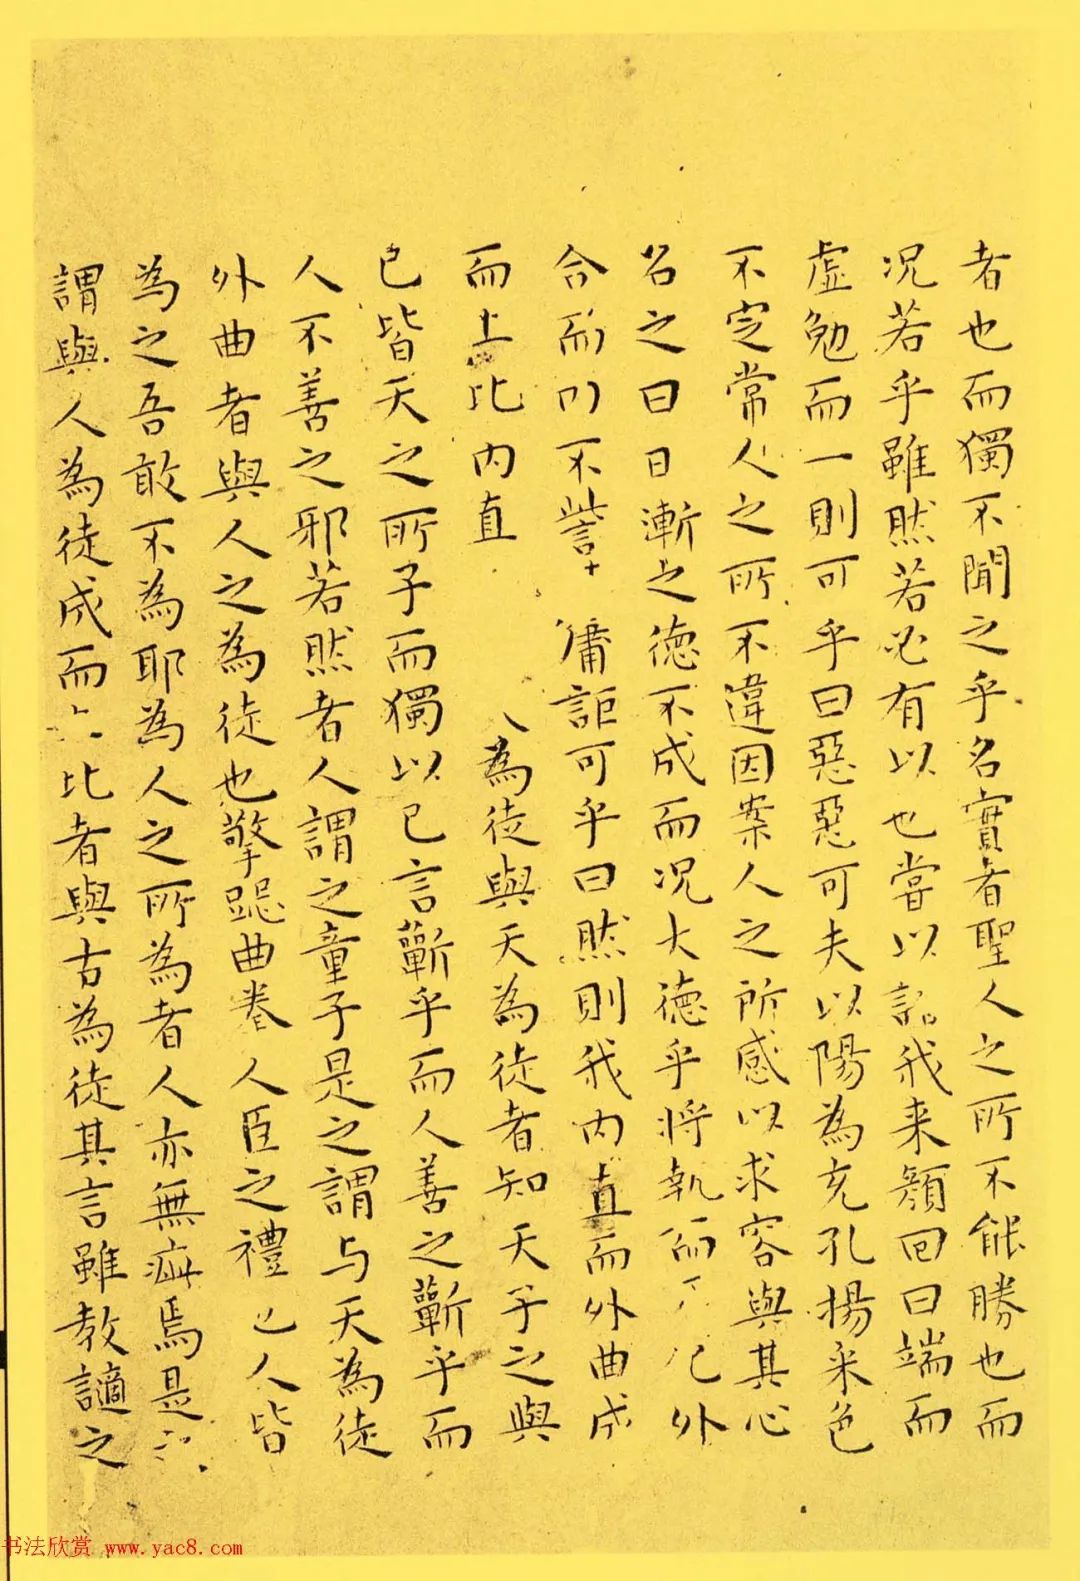 者也而獨不聞之乎名實者聖人之所不能勝也而
况若乎雖然若必有以也嘗以語我来顔回曰端而
虚勉而一則可乎曰惡惡可夫以陽為充孔揚采色
不定常人之所不違因案人之所感以求容與其心
名之曰日漸之德不成而况大德乎將執而不化外
合而内不訾庸詎可乎曰然則我内直而外曲成
而上比内直為徒與天為徒者知天子之與
已皆天之所子而獨以已言蘄乎而人善之蘄乎而
人不善之邪若然者人謂之童子是之謂与天為徒
外曲者與人之為徒也擎跽曲拳人臣之禮也人皆
為之吾敢不為耶為人之所為者人亦無疵焉是
謂與人為徒成而上比者與古為徒其言雖教讁之
书法欣赏 www.yac8.com